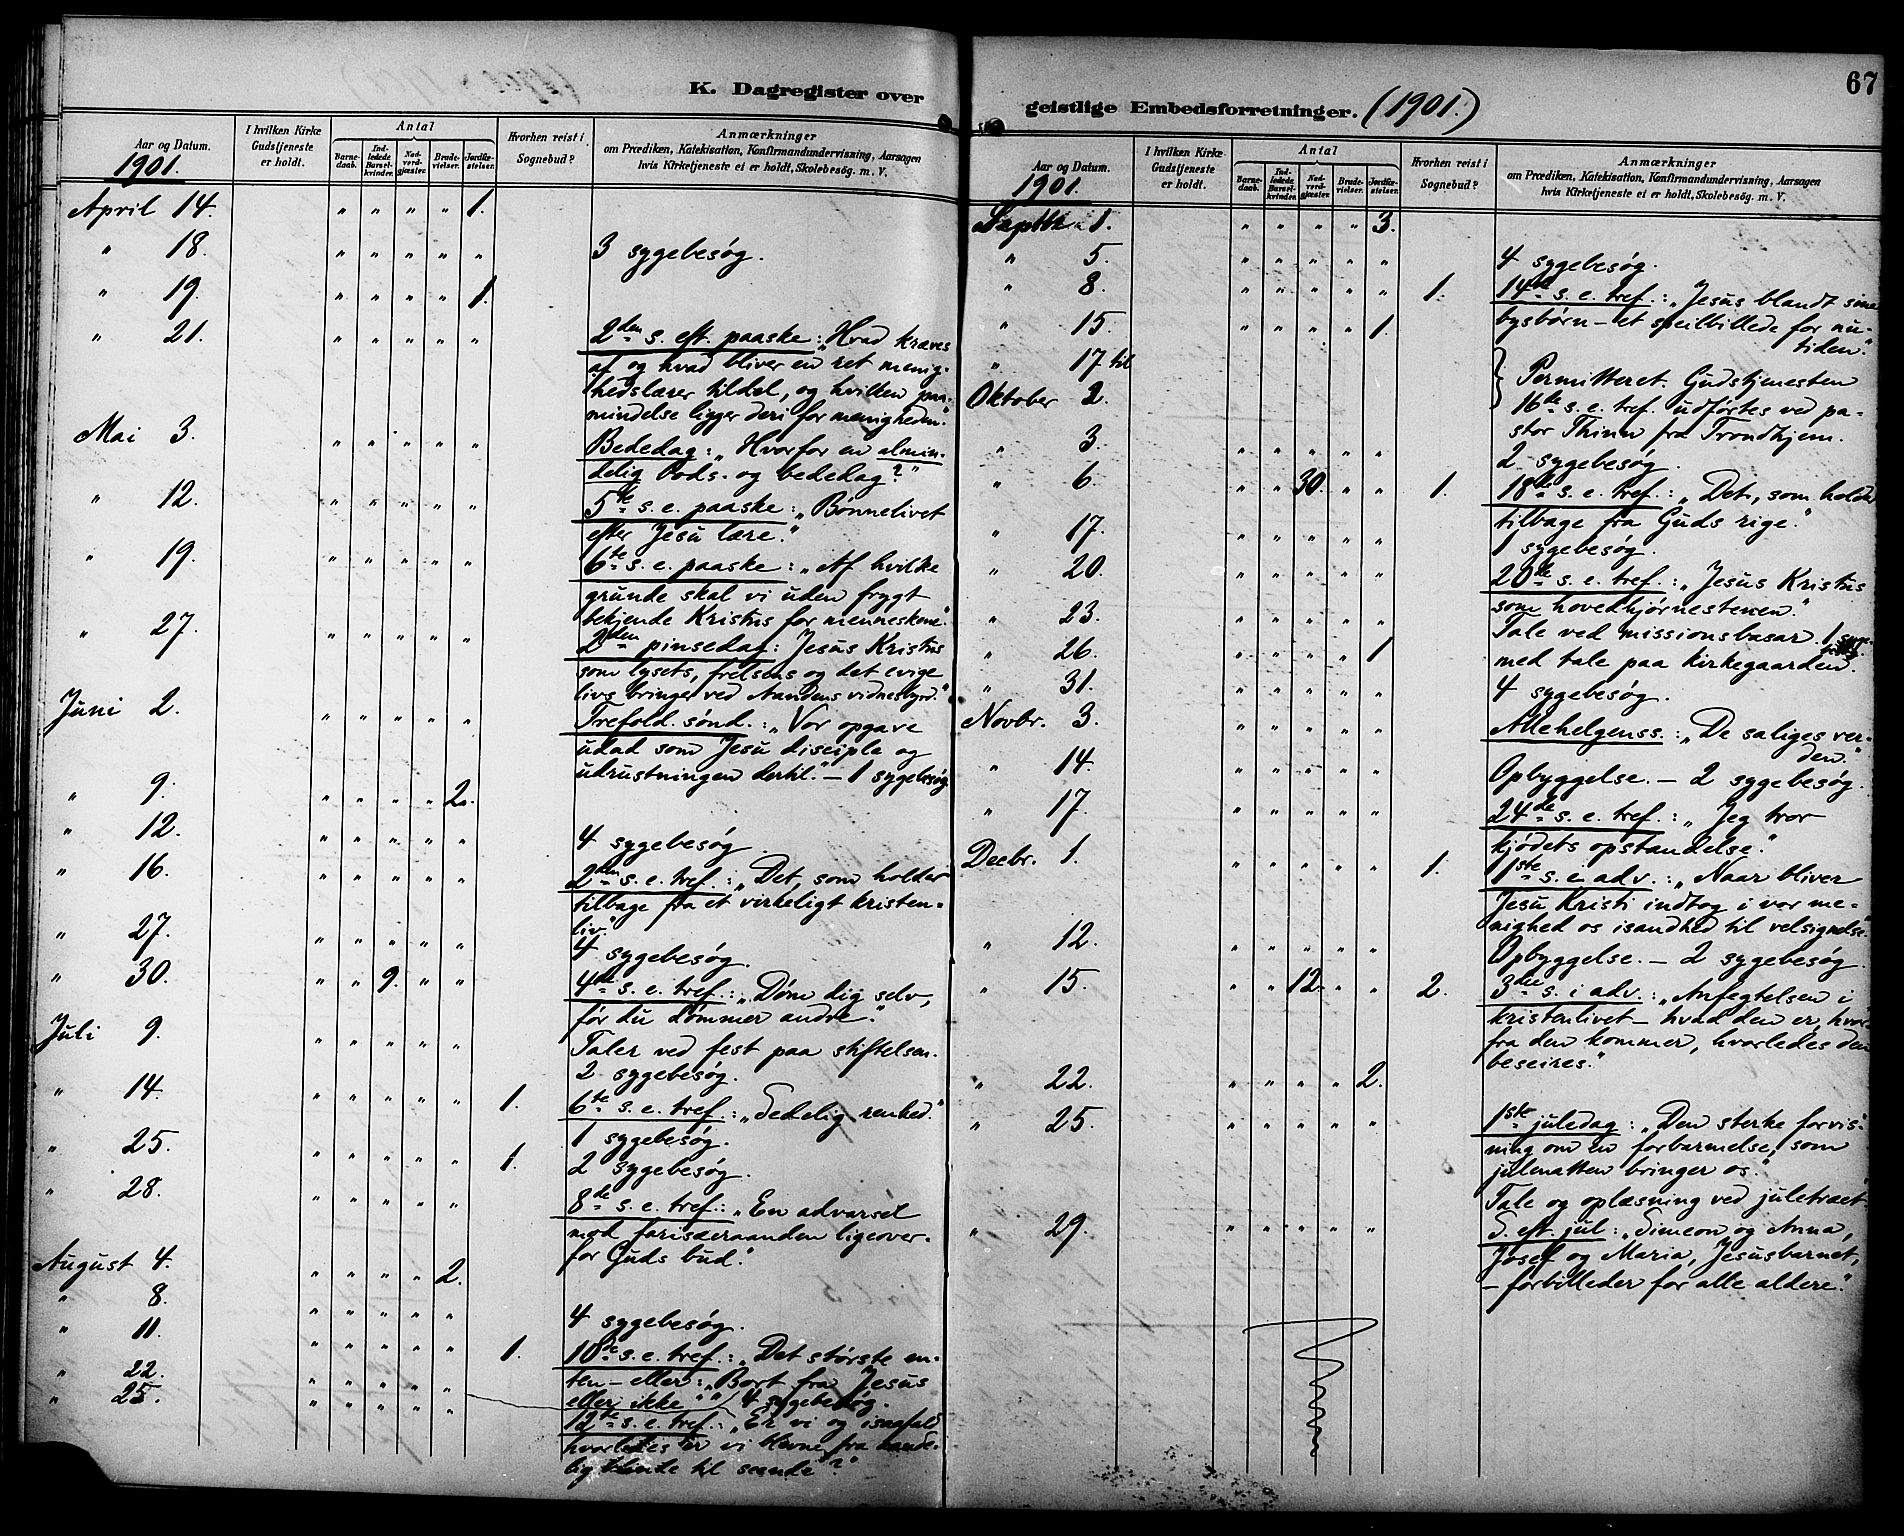 K. Dagregister over
Aar og Datum.
1901.
I hvilken Kirke Gudstjeneste er holdt.
Antal
Barnedaab.
Indledede Barselkvinder.
Nadverdgjæster.
Brudevielser.
Jordfæstelser.
Hvorhen reist i Sognebud?
Anmærkninger
om Prædiken, Katekisation, Konfirmandundervisning, Aarsagen
hvis Kirketjeneste ei er holdt, Skolebesøg. m. V.
April 14. " " " " 1.
" 18. " " " " " 3 sygebesøg.
" 19. " " " " 1.
" 21. " " " " " 2den s. eft. paaske: „Hvad kræves
af og hvad bliver en ret menig-
hedslærer tildel, og hvilken paa-
mindelse ligger deri for menigheden."
Mai 3. " " " " " Bededag: „Hvorfor en almin-
delig bods- og bededag?"
" 12. " " " " " 5te s. e. paaske: „Bønnelivet
efter Jesu lære."
" 19. " " " " " 6te s. e. paaske: „Af hvilke
grunde skal vi uden frygt
bekjende Kristus for menneskene."
" 27. " " " " " 2den pinsedag: Jesus Kristus
som lysets, frelsens og det evige
livs bringer ved Aandens vidnesbyrd."
Juni 2. " " " " " Trefold. sønd.: „Vor opgave
udad som Jesu disciple og
udrustningen dertil." – 1 sygebesøg
" 9. " " " " 2.
" 12. " " " " " 4 sygebesøg.
" 16. " " " " " 2den s. e. tref.: „Det, som holder
tilbage fra et virkeligt kristen-
liv."
" 27. " " " " " 4 sygebesøg.
" 30. " " 9. " " 4de s. e. tref.: „Døm dig selv,
før du dømmer andre."
Juli 9. " " " " " Taler ved fest paa stiftelsen.
2 sygebesøg.
" 14. " " " " " 1. 6te s. e. tref.: „Sedelig renhed."
1 sygebesøg.
" 25. " " " " " 1. 2 sygebesøg.
" 28. " " " " " 8de s. e. tref.: „En advarsel
mod farisæeraanden ligeover-
for Guds bud."
August 4. " " " " 2.
" 8. " " " " " 4 sygebesøg.
" 11. " " " " " 1. 10de s. e. tref.: „Det største en-
ten – eller: „Bort fra Jesus
eller ikke""
" 22. " " " " " 4 sygebesøg.
" 25. " " " " " 12te s. e. tref.: „Er vi og isaafald
hvorledes er vi blevne fra aande-
lig blinde til seende?"
geistlige Embedsforretninger. (1901.)
67
Aar og Datum.
1901.
I hvilken Kirke Gudstjeneste er holdt.
Antal
Barnedaab.
Indledede Barselkvinder.
Nadverdgjæster.
Brudevielser.
Jordfæstelser.
Hvorhen reist i Sognebud?
Anmærkninger
om Prædiken, Katekisation, Konfirmandundervisning, Aarsagen
hvis Kirketjeneste ei er holdt, Skolebesøg. m. V.
Septbr. 1. " " " " 3.
" 5. " " " " " 4 sygebesøg.
" 8. " " " " " 1. 14de s. e. tref.: „Jesus blandt sine
bysbørn – et speilbillede for nu-
tiden."
" 15. " " " " 1.
" 17 til
Oktober 2. Permitteret. Gudstjenesten
16de s. e. tref. udførtes ved pa-
stor Thinn fra Trondhjem.
" 3. " " " " " 2 sygebesøg.
" 6. " " 30. " " 1. 18de s. e. tref.: „Det, som holder
tilbage fra Guds rige."
" 17. " " " " " 1 sygebesøg.
" 20. " " " " " 20de s. e. tref.: „Jesus Kristus
som hovedhjørnestenen"
" 23. " " " " " Tale ved missionsbasar. 1 syge-
" 26. " " " " 1 med tale paa kirkegaarden.
" 31. " " " " " 4 sygebesøg.
Novbr. 3. " " " " " Allehelgenss.: „De saliges ver-
den."
" 14. " " " " " Opbyggelse. – 2 sygebesøg.
" 17. " " " " " 24de s. e. tref.: „Jeg tror
kjødets opstandelse."
Decbr. 1. " " " " " 1. 1ste s. e adv.: „Naar bliver
Jesu Kristi indtog i vor me-
nighed os isandhed til velsignelse."
" 12. " " " " " Opbyggelse. – 2 sygebesøg.
" 15. " " 12. " " 2. 3die s. i adv.: „Anfegtelsen i
kristenlivet – hvad den er, hvor-
fra den kommer, hvorledes den
beseires."
" 22. " " " " 2.
" 25. " " " " " 1ste juledag: „Den sterke forvis-
ning om en forbarmelse, som
julenatten bringer os."
Tale og oplæsning ved juletræet.
" 29. " " " " " S. eft. jul: „Simeon og Anna,
Josef og Maria, Jesusbarnet,
– forbilleder for alle aldere."